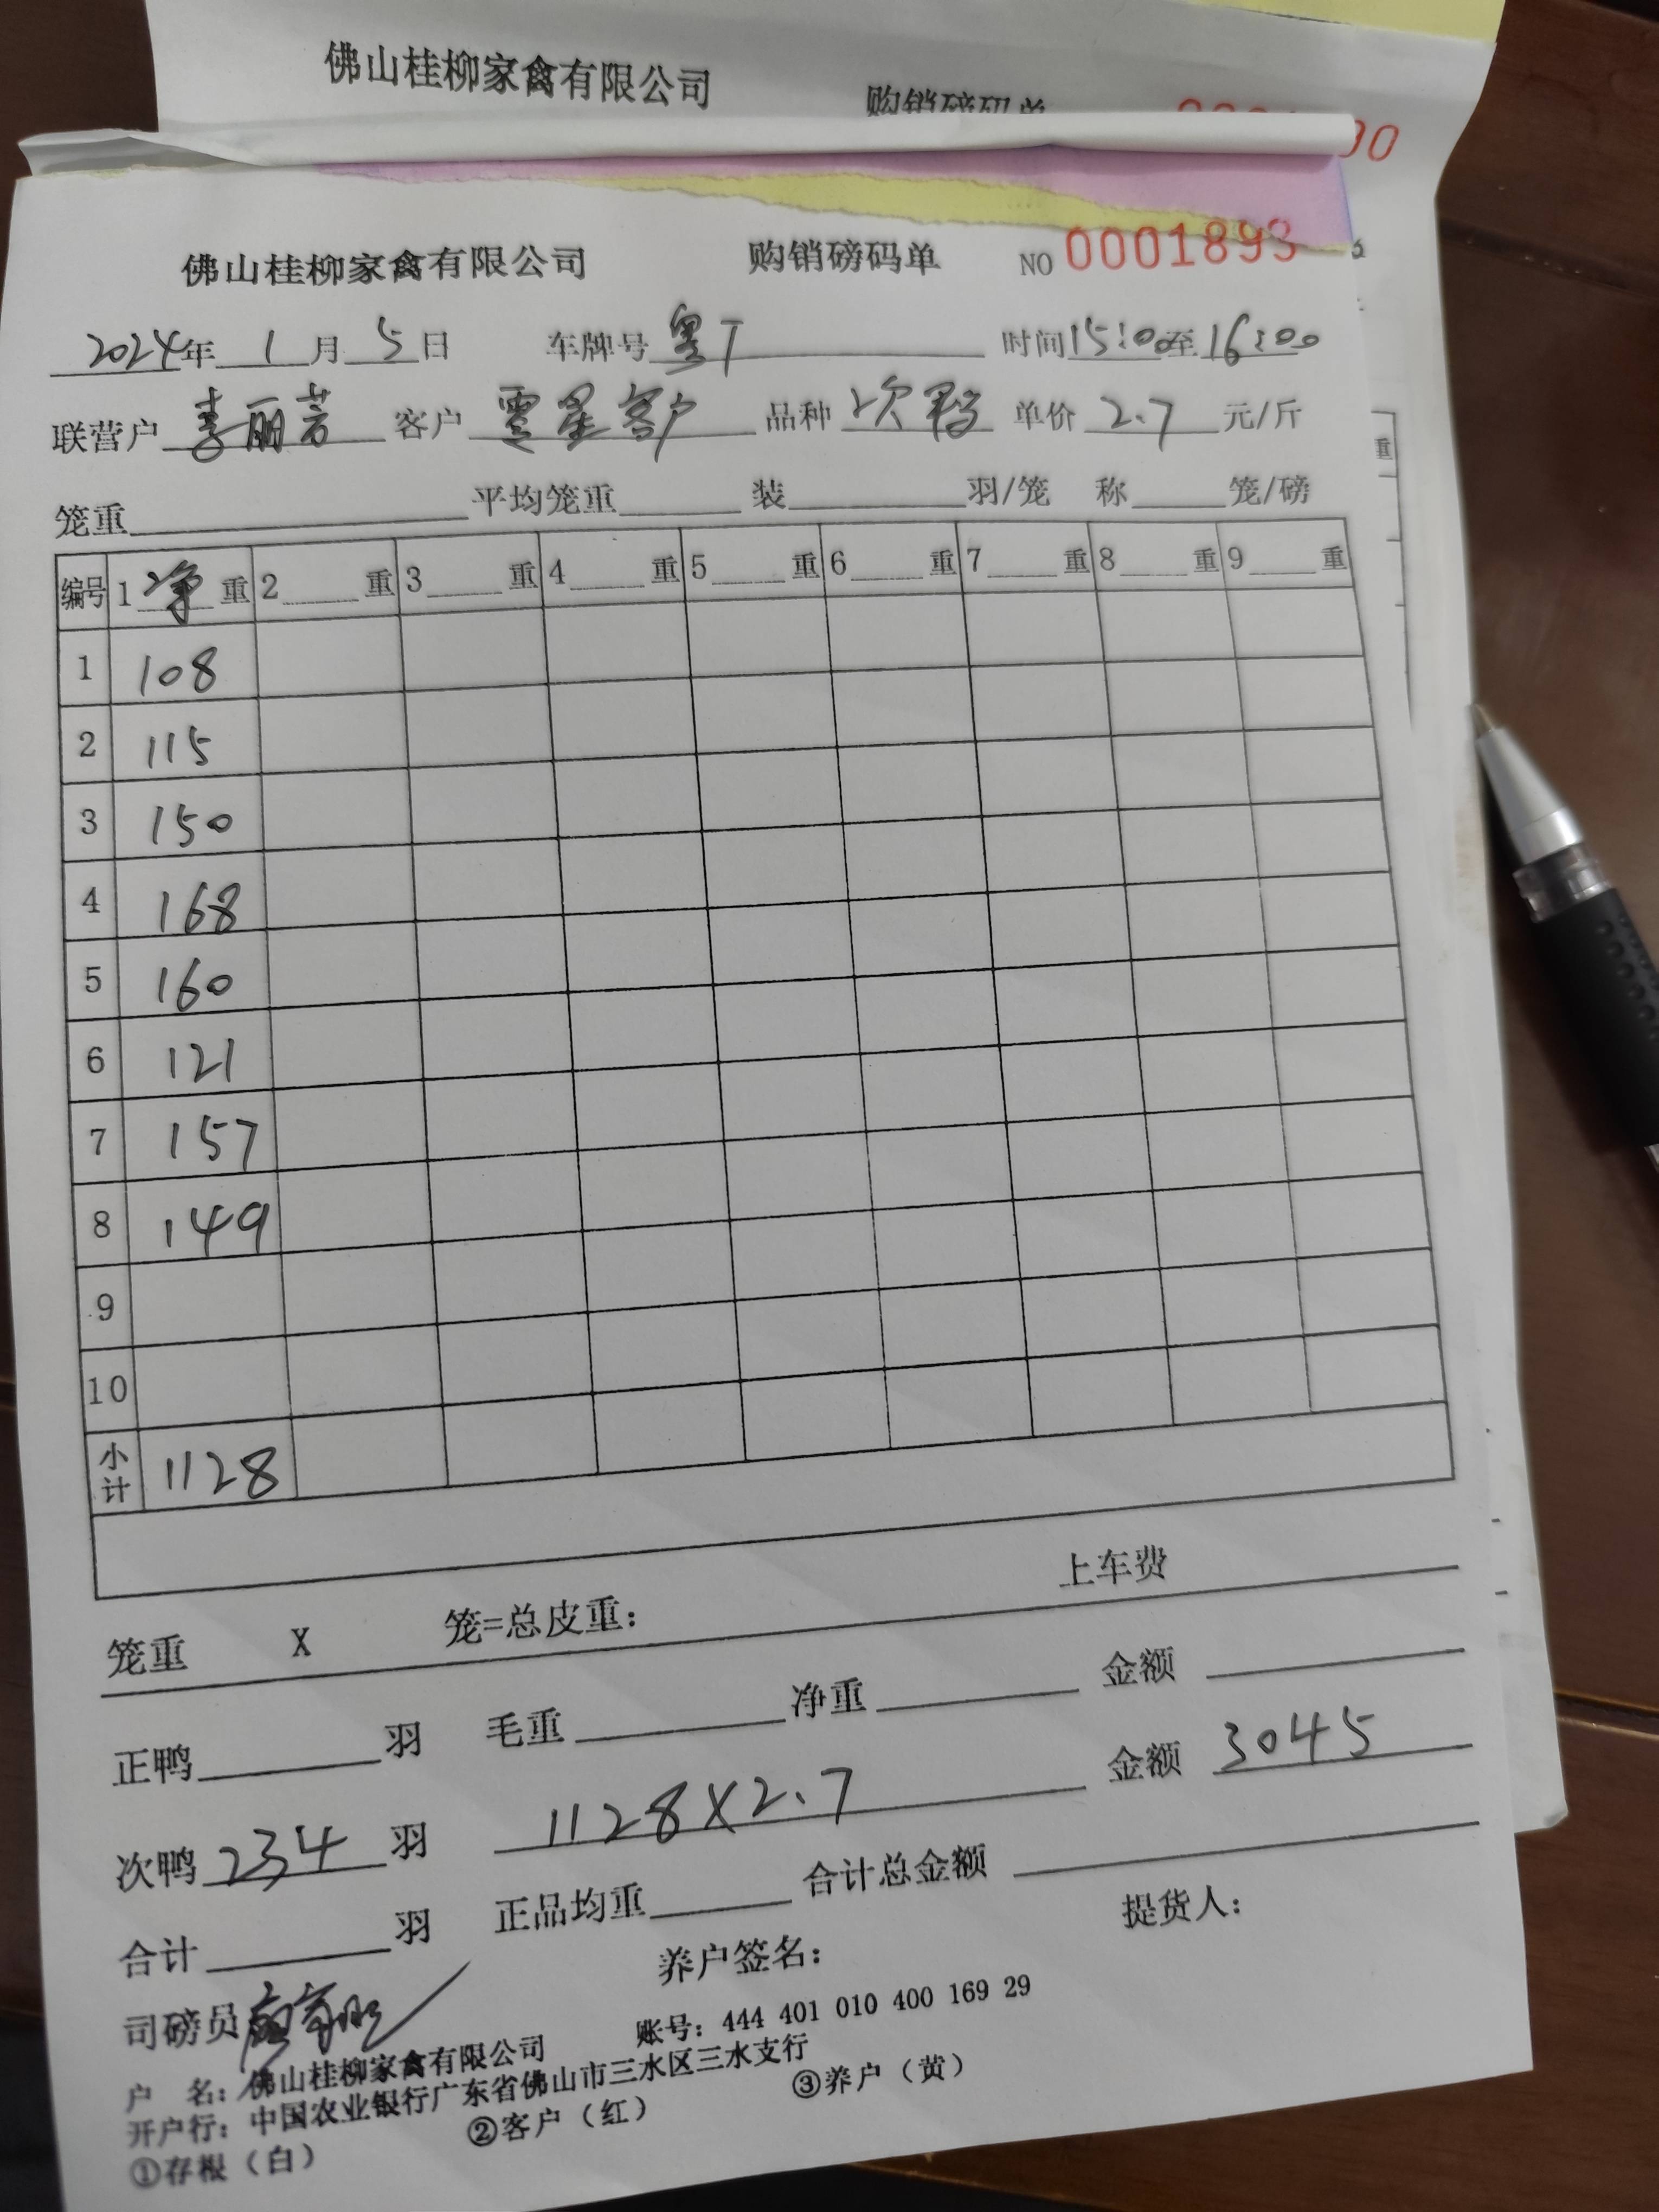 佛山桂柳家禽有限公司 购销磅码单
佛山桂柳家禽有限公司 购销磅码单 NO 0001893
2024年 1 月 5 日 车牌号 粤T 时间15:00至16:00
联营户 李丽芳 客户 零星客户 品种 次鸭 单价 2.7 元/斤
笼重 平均笼重 装 羽/笼 称 笼/磅
编号 1 净 重 2 重 3 重 4 重 5 重 6 重 7 重 8 重 9 重
1 108
2 115
3 150
4 168
5 160
6 121
7 157
8 149
9
10
小计 1128
上车费
笼重 X 笼=总皮重:
正鸭 羽 毛重 净重 金额
次鸭 234 羽 1128X2.7 金额 3045
合计 羽 正品均重 合计总金额
司磅员 养户签名: 提货人:
户 名: 佛山桂柳家禽有限公司 账号: 444 401 010 400 169 29
开户行: 中国农业银行广东省佛山市三水区三水支行
①存根(白) ②客户(红) ③养户(黄)